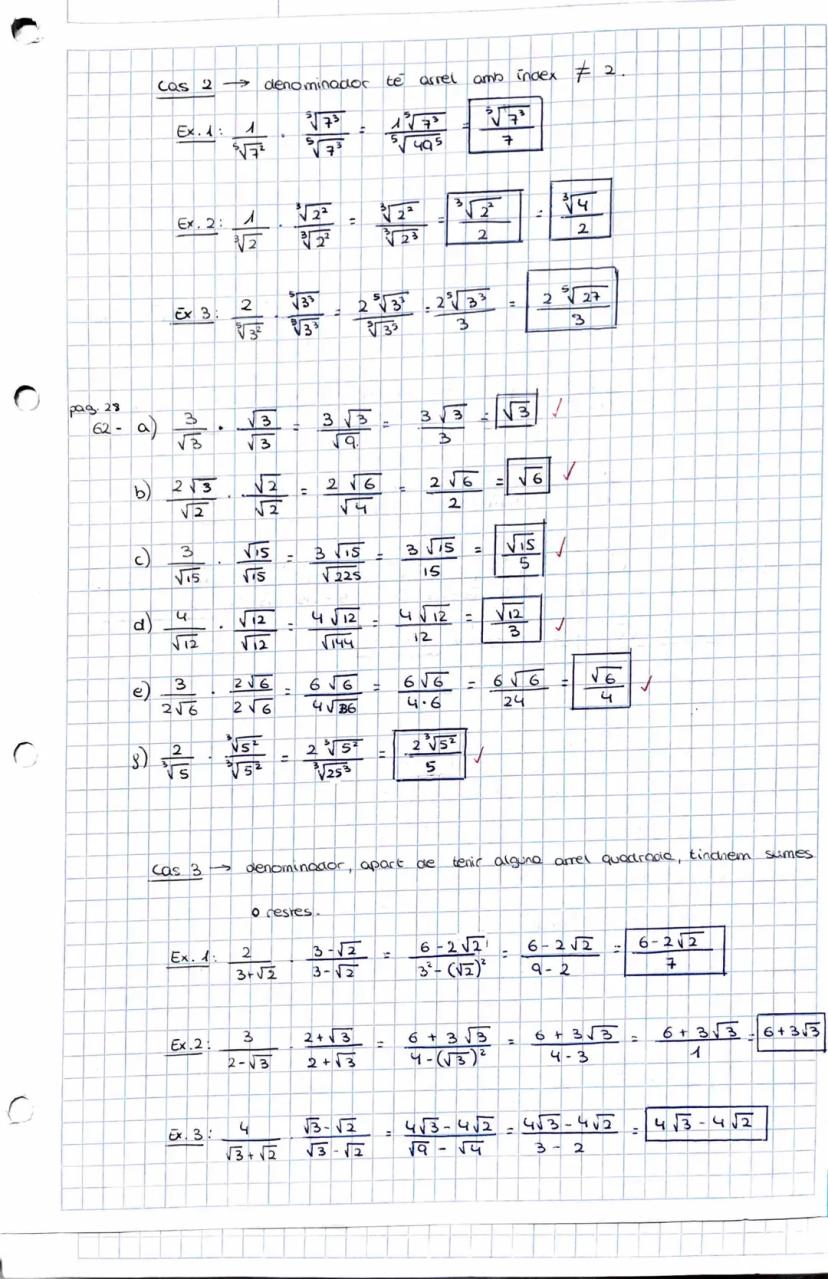 Cas 2 → denominador té arrel amb índex ≠ 2.
Ex. 1: 1/⁵√7² · ⁵√7³/⁵√7³ = 1⁵√7³/⁵√49⁵ = ⁵√7³/7
Ex. 2: 1/³√2 · ³√2²/³√2² = ³√2²/³√2³ = ³√2²/2 = ³√4/2
Ex 3: 2/⁵√3² · ⁵√3³/⁵√3³ = 2⁵√3³/⁵√3⁵ = 2⁵√3³/3 = 2⁵√27/3
pag. 28
62- a) 3/√3 · √3/√3 = 3√3/√9 = 3√3/3 = √3 ✓
b) 2√3/√2 · √2/√2 = 2√6/√4 = 2√6/2 = √6 ✓
c) 3/√15 · √15/√15 = 3√15/√225 = 3√15/15 = √15/5 ✓
d) 4/√12 · √12/√12 = 4√12/√144 = 4√12/12 = √12/3 ✓
e) 3/2√6 · 2√6/2√6 = 6√6/4√36 = 6√6/4·6 = 6√6/24 = √6/4 ✓
f) 2/³√5 · ³√5²/³√5² = 2³√5²/³√25³ = 2³√5²/5 ✓
Cas 3 → denominador, apart de tenir alguna arrel quadrada, tindrem sumes
o restes.
Ex. 1: 2/3+√2 · 3-√2/3-√2 = 6-2√2/3²-(√2)² = 6-2√2/9-2 = 6-2√2/7
Ex. 2: 3/2-√3 · 2+√3/2+√3 = 6+3√3/4-(√3)² = 6+3√3/4-3 = 6+3√3/1 = 6+3√3
Ex. 3: 4/√3+√2 · √3-√2/√3-√2 = 4√3-4√2/√9-√4 = 4√3-4√2/3-2 = 4√3-4√2